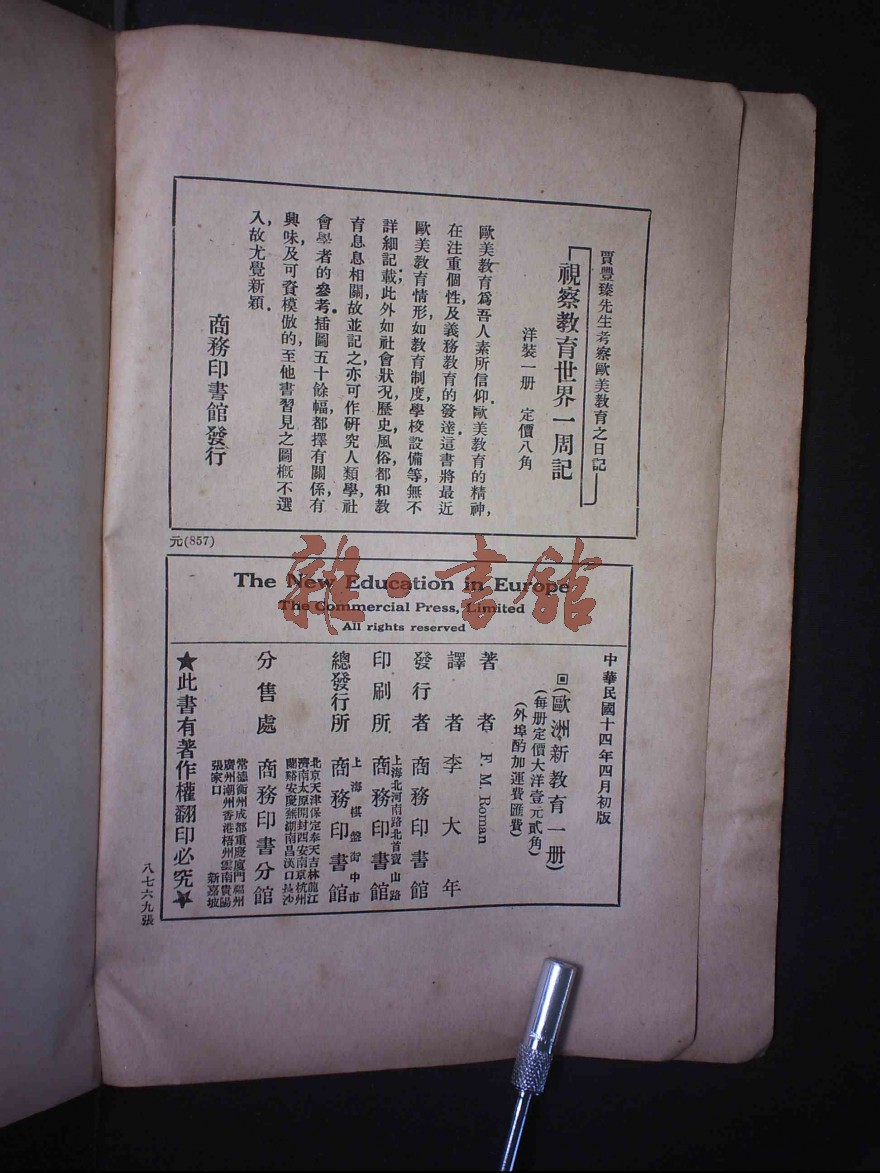 賈豐臻先生考察歐美教育之日記
視察教育世界一周記
洋裝一册　定價八角
歐美教育爲吾人素所信仰.歐美教育的精神,
在注重個性,及義務教育的發達.這書將最近
歐美教育情形,如教育制度,學校設備等,無不
詳細記載;此外如社會狀況,歷史,風俗,都和教
育息息相關,故並記之,亦可作研究人類學,社
會學者的參考.插圖五十餘幅,都擇有關係,有
興味,及可資模倣的,至他書習見之圖概不選
入,故尤覺新穎.
商務印書館發行
元(857)
The New Education in Europe
The Commercial Press, Limited
All rights reserved
中華民國十四年四月初版
(歐洲新教育一册)
(每册定價大洋壹元貳角)
(外埠酌加運費匯費)
著者 F. M. Roman
譯者 李大年
發行者 商務印書館
上海北河南路北首寶山路
印刷所 商務印書館
上海棋盤街中市
總發行所 商務印書館
北京天津保定奉天吉林龍江
濟南太原開封西安南京杭州
蘭谿安慶蕪湖南昌漢口長沙
分售處 商務印書分館
常德衡州成都重慶廈門福州
廣州潮州香港梧州雲南貴陽
張家口 新嘉坡
★此書有著作權翻印必究★
八七六九張
雜·書館